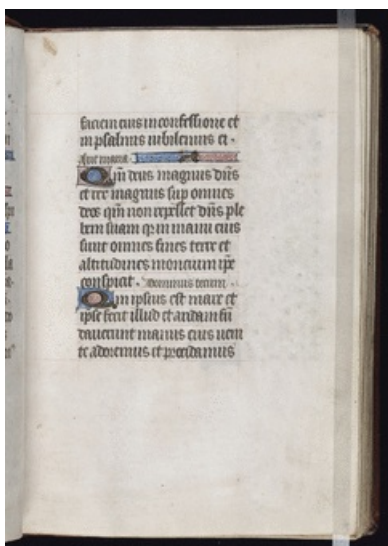 faciem eius in confessione et
in psalmis iubilemus ei ·
Aue maria
Qm̄ deus magnus dn̄s
et rex magnus sup omnes
deos qm̄ non repellet dn̄s ple
bem suam q̄ in manu eius
sunt omnes fines terre et
altitudines moncium ip̄e
conspicit · Dominus tecum
Qm̄ ipsius est mare et
ipse fecit illud et aridam fū
dauerunt manus eius ueni
te adoremus et procidamus